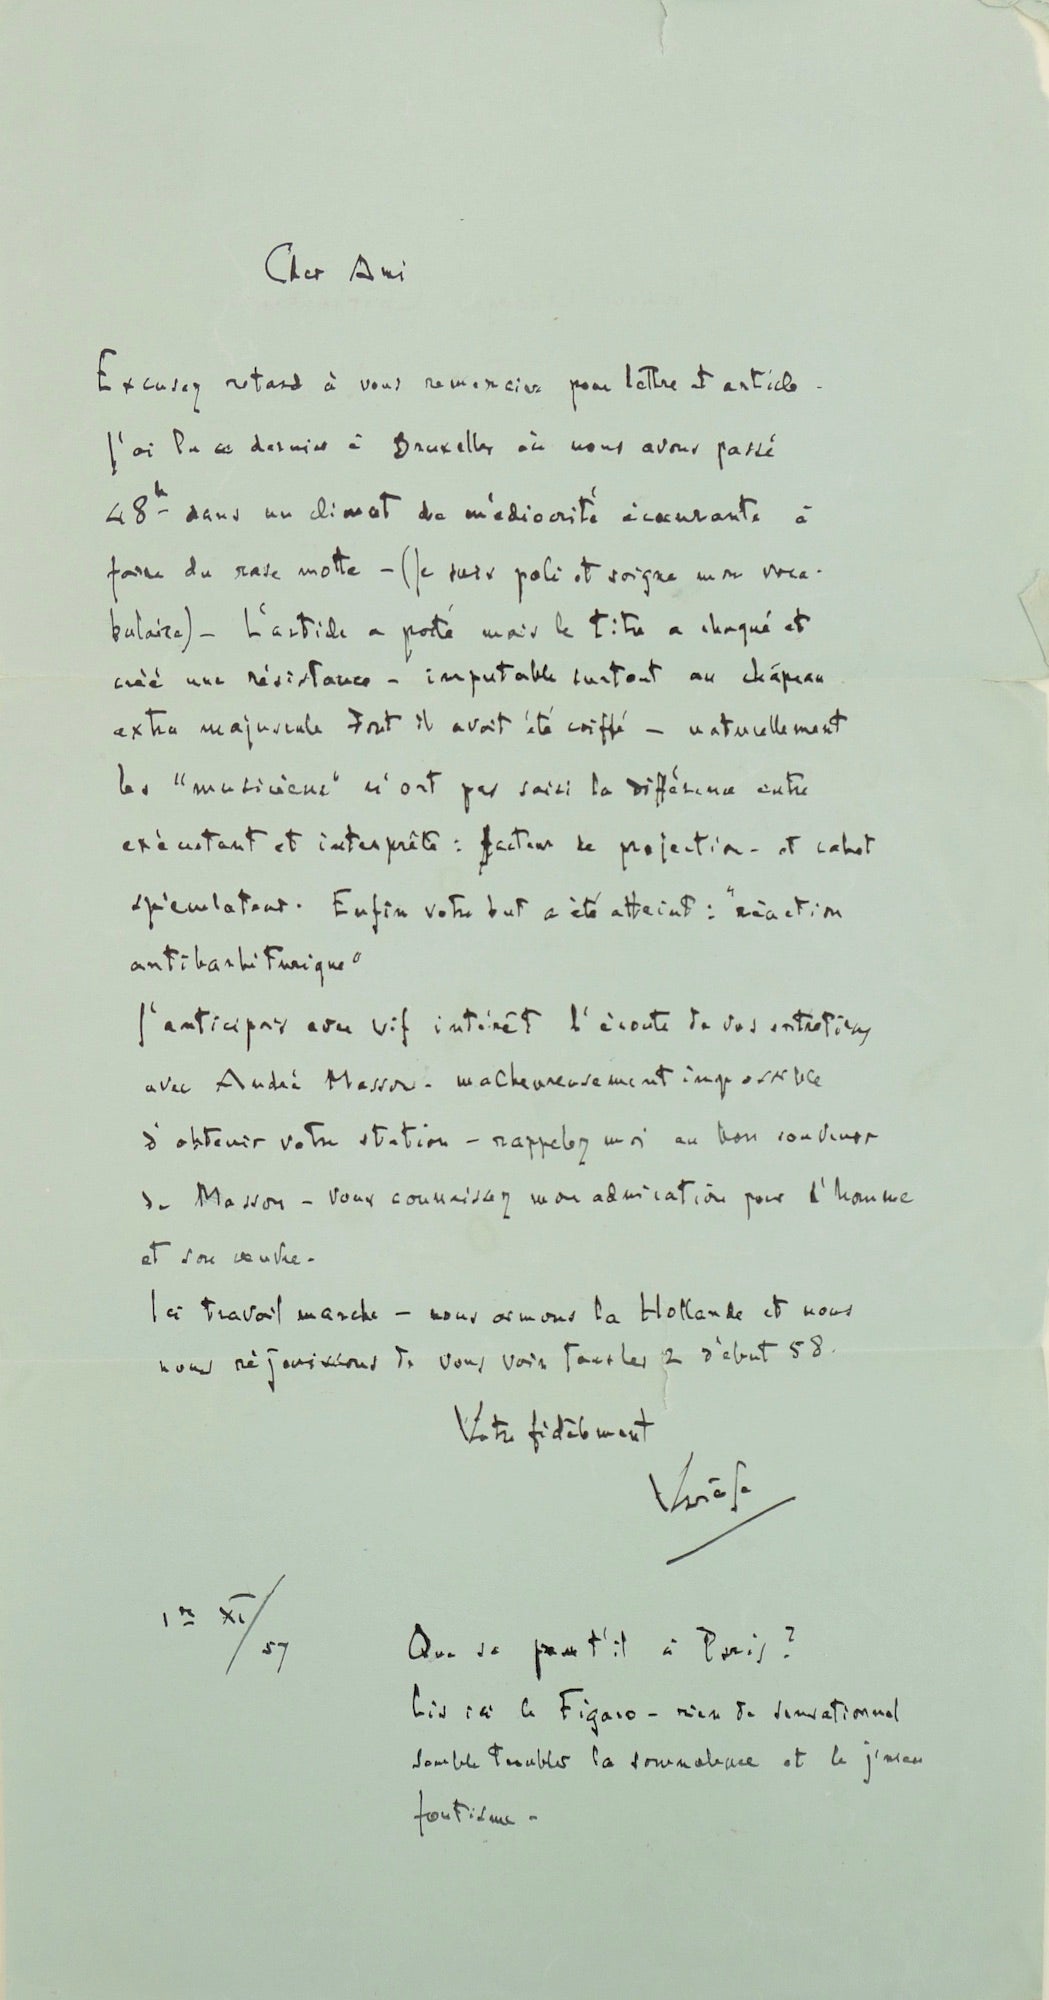 Cher Ami
Excusez retard à vous remercier pour lettre et article -
J'ai lu ce dernier à Bruxelles où nous avons passé
48h dans un climat de médiocrité écœurante à
faire du rase motte - (Je suis poli et soigne mon voca-
bulaire) - L'article a porté mais le titre a choqué et
créé une résistance - imputable surtout au chapeau
extra majuscule dont il avait été coiffé - naturellement
les "musiciens" n'ont pas saisi la différence entre
exécutant et interprète : facteur de projection - et cabot
spéculateur. Enfin votre but a été atteint : "réaction
antibarbiturique"
J'anticipais avec vif intérêt l'écoute de vos entretiens
avec André Masson - malheureusement impossible
d'obtenir votre station - rappelez moi au bon souvenir
de Masson - vous connaissez mon admiration pour l'homme
et son œuvre -
Ici travail marche - nous aimons la Hollande et nous
nous réjouissons de vous voir tous les 2 début 58.
Votre fidèlement
Varèse
1er XI/57
Que se t'il à Paris ?
Lis ici le Figaro - rien de sensationnel
semble troubler la somnolence et le j'men
foutisme -